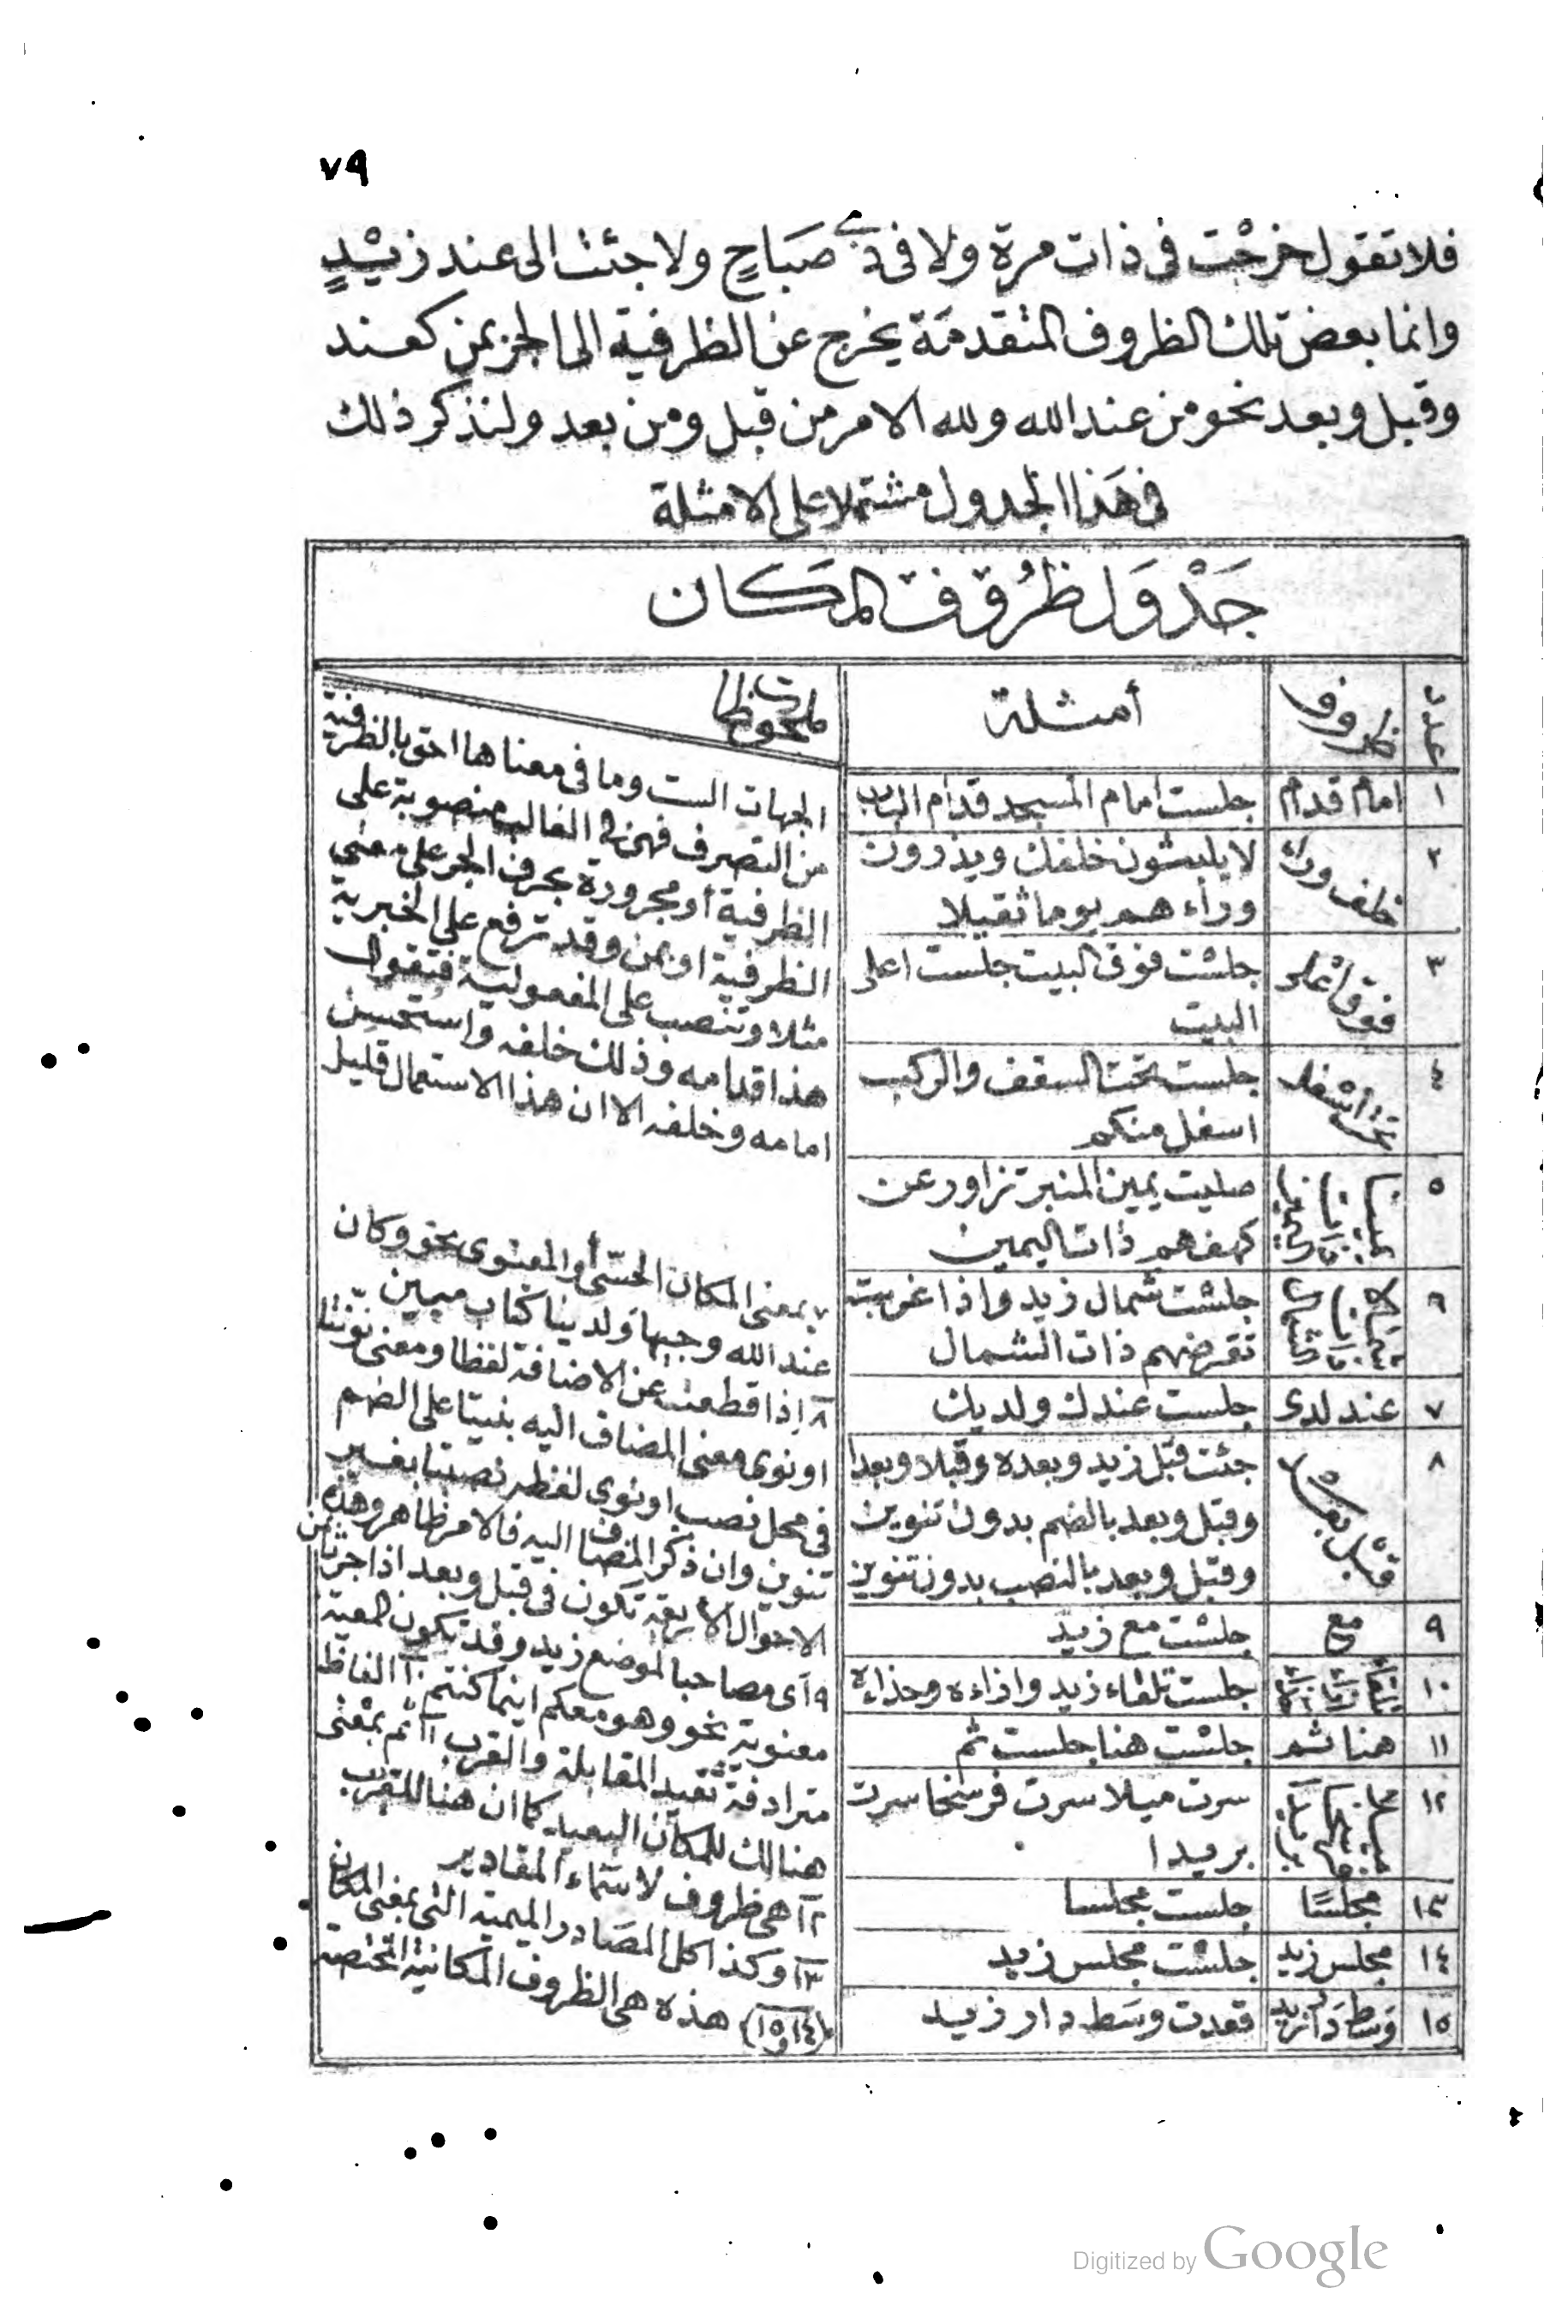 ٧٩
فلا تقول خرجْت فى ذات مرة ولا فى ذى صَبَاحٍ ولا جئت الى عند زيْدٍ
وانما بعض تلك الظروف المتقدمَة يخرج عن الظرفية الى الجر بمن كعند
وقبل وبعد نحو من عند الله ولله الامر من قبل ومن بعد ولنذكر ذلك
فى هَذا الجدول مشتملا على الامثلة
جَدْوَل ظرُوف المَكَان
عدد ظروف أمثلة ملحوظات
١ امام قدام جلست امام المسجد قدام الباب
٢ خلف وراء لا يلبثون خلفك ويذرون
وراء هم يوما ثقيلا
٣ فوق أعلى جلست فوق البيت جلست اعلى
البيت
٤ تحت أسفل جلست تحت السقف والركب
اسفل منكم
٥ صليت يمين المنبر تزاور عن
كهفهم ذات اليمين
٦ جلست شمال زيد واذا غربت
تقرضهم ذات الشمال
٧ عند لدى جلست عندك ولديك
٨ قبل بعد جئت قبل زيد وبعده وقبلا وبعدا
وقبل وبعد بالضم بدون تنوين
وقبل وبعد بالنصب بدون تنوين
٩ مع جلست مع زيد
١٠ جلست تلقاء زيد وازاءه وحذاءه
١١ هنا ثم جلست هنا جلست ثم
١٢ سرت ميلا سرت فرسخا سرت
بريدا
١٣ مجلسًا جلست مجلسا
١٤ مجلس زيد جلست مجلس زيد
١٥ وَسَط دَار زيد قعدت وسَط دار زيد
الجهات الست وما فى معناها احق بالظرفية
من التصرف فهن فى الغالب منصوبة على
الظرفية أو مجرورة بحرف الجر على معنى
الظرفية او بمن وقد ترفع على الخبرية
مثلا وتنصب على المفعولية فتقول
هذا قدامه وذلك خلفه واستحسن
امامه وخلفه الا ان هذا الاستعمال قليل
٧ بمعنى المكان الحسّى أو المعنوى نحو وكان
عند الله وجيها ولدينا كتاب مبين
٨ إذا قطعت عن الاضافة لفظا ومعنى نوّنتا
او نوى معنى المضاف اليه بنيتا على الضم
فى محل نصب او نوى لفظه نصبتا بغير
تنوين وان ذكر المضاف اليه فالامر ظاهر وهذه
الاحوال الأربعة تكون فى قبل وبعد اذا جرتا بمن
٩ أى مصاحبا لموضع زيد وقد تكون المعية
معنوية نحو وهو معكم اينما كنتم ١٠ الفاظ
مترادفة تفيد المقابلة والقرب ١١ ثم بمعْنى
هنالك للمكان البعيد كما ان هنا للقريب
١٢ هى ظروف لاسماء المقادير
١٣ وكذا كل المصَادر الميمية التى بمعنى المكان
(١٤ و١٥) هذه هى الظروف المكانية المختصة
Digitized by Google